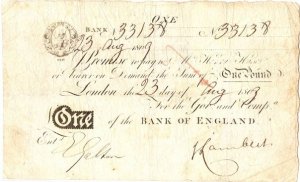 ONE
BANK No 33138 No 33138
23 Aug 1803
I Promise to pay to Mr. H. Hase
or bearer on Demand the Sum of One Pound
London the 23 day of Aug 1803
For the Govr and Compa
One of the BANK of ENGLAND.
Entd